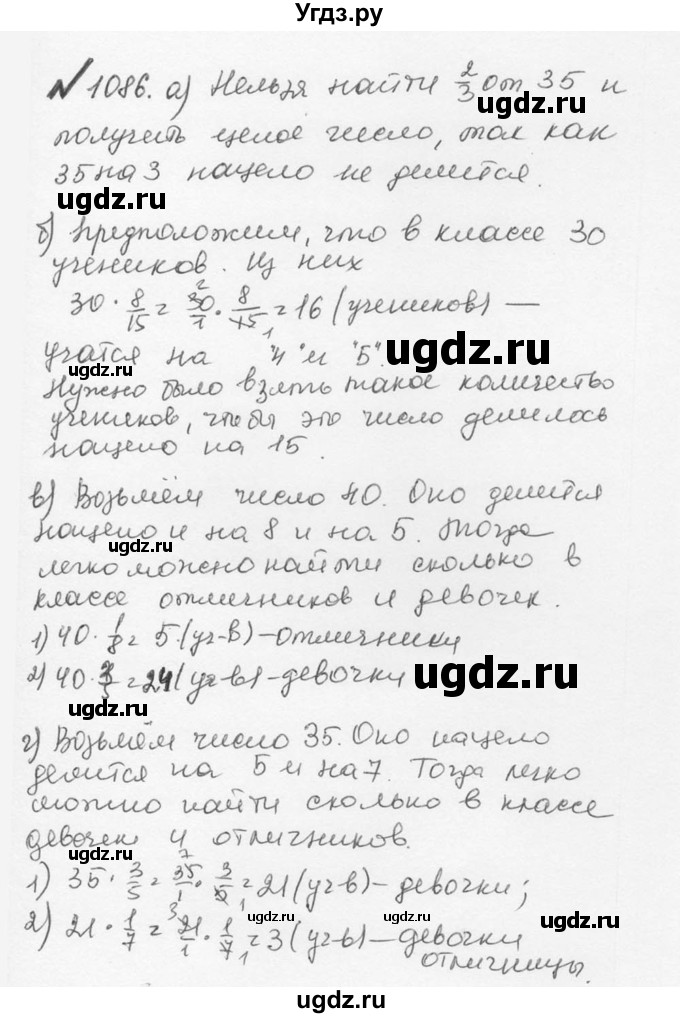 Угдз.ру
№1086. а) Нельзя найти 2/3 от 35 и
получить целое число, так как
35 на 3 нацело не делится.
ugdz.ru
ugdz.ru
б) Предположим, что в классе 30
учеников. Из них
30 · 8/15 = 30/1 · 8/15 = 16 (учеников) —
учатся на "4" и "5".
ugdz.ru
Нужно было взять такое количество
учеников, чтобы это число делилось
нацело на 15.
ugdz.ru
в) Возьмём число 40. Оно делится
нацело и на 8 и на 5. Тогда
ugdz.ru
легко можно найти сколько в
классе отличников и девочек.
ugdz.ru
1) 40 · 1/8 = 5 (уч-в) – отличники
2) 40 · 3/5 = 24 (уч-в) – девочки
ugdz.ru
ugdz.ru
г) Возьмём число 35. Оно нацело
делится на 5 и на 7. Тогда легко
можно найти сколько в классе
девочек и отличников.
ugdz.ru
1) 35 · 3/5 = 35/1 · 3/5 = 21 (уч-в) – девочки;
2) 21 · 1/7 = 21/1 · 1/7 = 3 (уч-в) – девочки
отличницы.
ugdz.ru
ugdz.ru
ugdz.ru
ugdz.ru